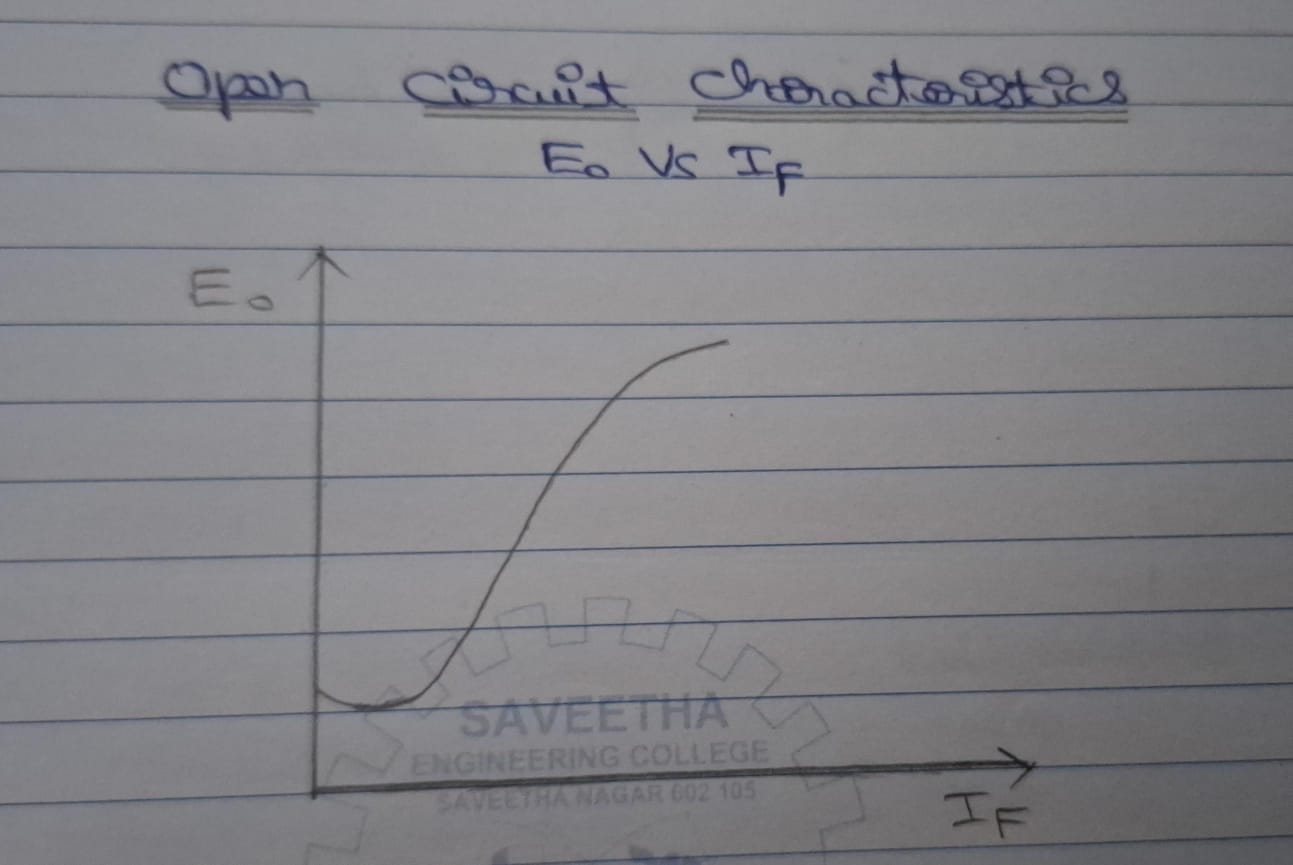 Open Circuit Characteristics
E₀ Vs I_F
E₀
SAVEETHA
ENGINEERING COLLEGE
SAVEETHA NAGAR 602 105
I_F